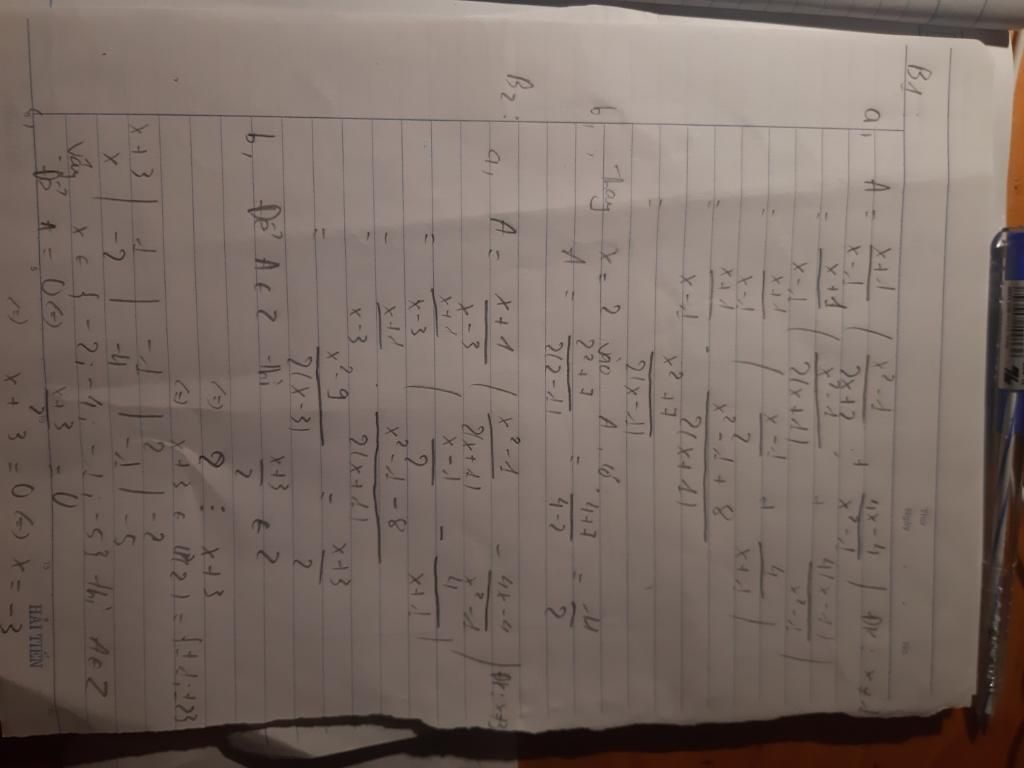 B1:
a, A = x+1/x-1 ( x²-1/2x+2 + 4x-4/x²-1 ) ĐK: x≠
= x+1/x-1 ( x²-1/2(x+1) + 4(x-1)/x²-1 )
= x+1/x-1 ( x-1/2 + 4/x+1 )
= x+1/x-1 . x²-1+8/2(x+1)
= x²+7/2(x-1)
b, Thay x = 2 vào A có
A = 2²+7/2(2-1) = 4+7/4-2 = 11/2
B2:
a, A = x+1/x-3 ( x²-1/2(x+1) - 4x-4/x²-1 )
= x+1/x-3 ( x-1/2 - 4/x+1 )
= x+1/x-3 . x²-1-8/2(x+1)
= x²-9/2(x-3) = x+3/2
b, Để A ∈ Z thì x+3/2 ∈ Z
(=) 2 ⋮ x+3
(=) x+3 ∈ Ư(2) = {±1; ±2}
x+3 | 1 | -1 | 2 | -2
x | -2 | -4 | -1 | -5
Vậy x ∈ {-2; -4; -1; -5} thì A ∈ Z
c, Để A = 0 (=) x+3/2 = 0
(=) x+3 = 0 (=) x = -3
Thứ
Ngày
No.
HẢI TIẾN